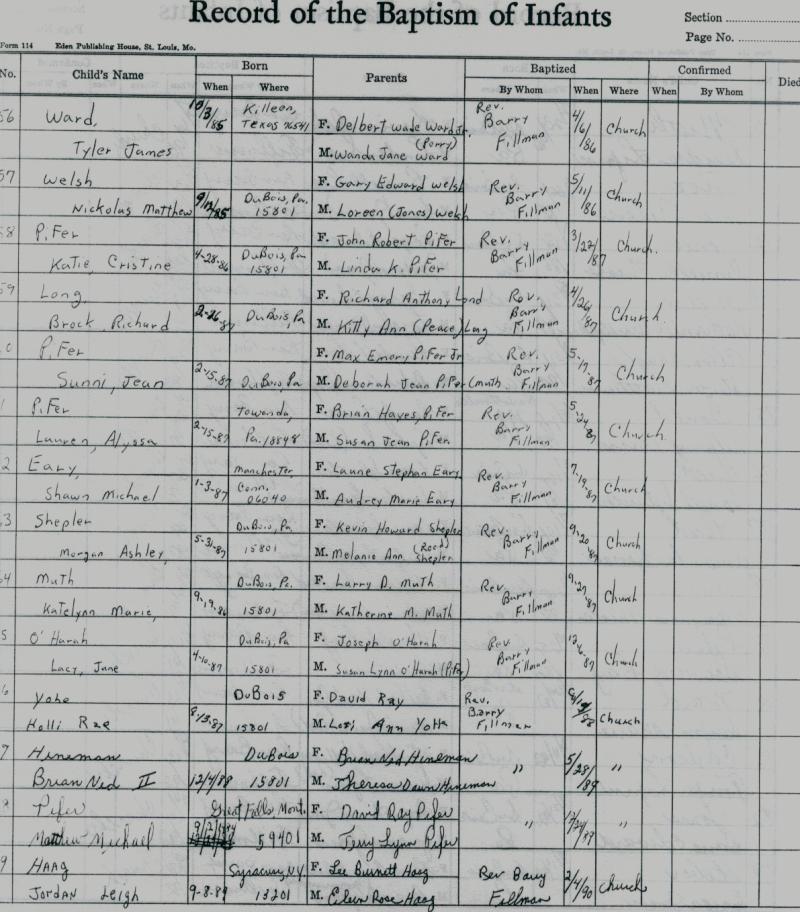 Record of the Baptism of Infants
Section
Page No.
Form 114 Eden Publishing House, St. Louis, Mo.
No. Child's Name Born Parents Baptized Confirmed Died
When Where By Whom When Where When By Whom
56 Ward, 10/3/85 Killeen, Texas 76541 F. Delbert Wade Ward Jr. Rev. Barry Fillman 4/6/86 Church
Tyler James M. Wanda Jane (Perry) Ward
57 Welsh F. Gary Edward Welsh Rev. Barry Fillman 5/11/86 Church
Nickolas Matthew 9/12/85 DuBois, Pa. 15801 M. Loreen (Jones) Welsh
58 Pifer F. John Robert Pifer Rev. Barry Fillman 3/22/87 Church.
Katie, Cristine 4-28-86 DuBois, Pa 15801 M. Linda K. Pifer
59 Long, F. Richard Anthony Rev. Barry Fillman 4/26/87 Church
Brock, Richard 2-26-87 DuBois, Pa M. Kitty Ann (Peace) Long
0 Pifer F. Max Emery Pifer Jr Rev. Barry Fillman 5-17-87 Church
Sunni, Jean 2-15-87 DuBois, Pa M. Deborah Jean Pifer (Muth
1 Pifer Towanda, F. Brian Hayes, Pifer Rev. Barry Fillman 5-24-87 Church
Lauren, Alyssa 2-15-87 Pa. 18848 M. Susan Jean Pifer
2 Eary, Manchester, F. Stephan Eary Rev. Barry Fillman 7-19-87 Church
Shawn Michael 1-3-87 Conn. 06040 M. Audrey Marie Eary
3 Shepler DuBois, Pa F. Kevin Howard Shepler Rev. Barry Fillman 9-20-87 Church
Morgan Ashley, 5-31-87 15801 M. Melanie Ann (Reed) Shepler
64 Muth DuBois, Pa. F. Larry D. Muth Rev. Barry Fillman 9-27-87 Church
Katelynn Marie, 9-19-86 15801 M. Katherine M. Muth
5 O'Harah DuBois, Pa F. Joseph O'Harah Rev Barry Fillman 12-6-87 Church
Lacy, Jane 4-10-87 15801 M. Susan Lynn O'Harah (Pifer)
6 Yohe DuBois F. David Ray Rev. Barry Fillman Church
Kolli Rae 8/3/87 15801 M. Lori Ann Yohe
7 Hineman DuBois F. Brian Ned Hineman " 5/28/89 "
Brian Ned II 12/4/88 15801 M. Theresa Dawn Hineman
8 Pifer Great Falls, Mont. F. David Ray Pifer " 12/24/89 "
Matthew Michail 59401 M. Terry Lynn Pifer
9 Haag Syracuse, N.Y. F. Lee Burnett Haag Rev Barry Fillman 2/4/90 Church
Jordan Leigh 9-8-89 13201 M. Eileen Rose Haag